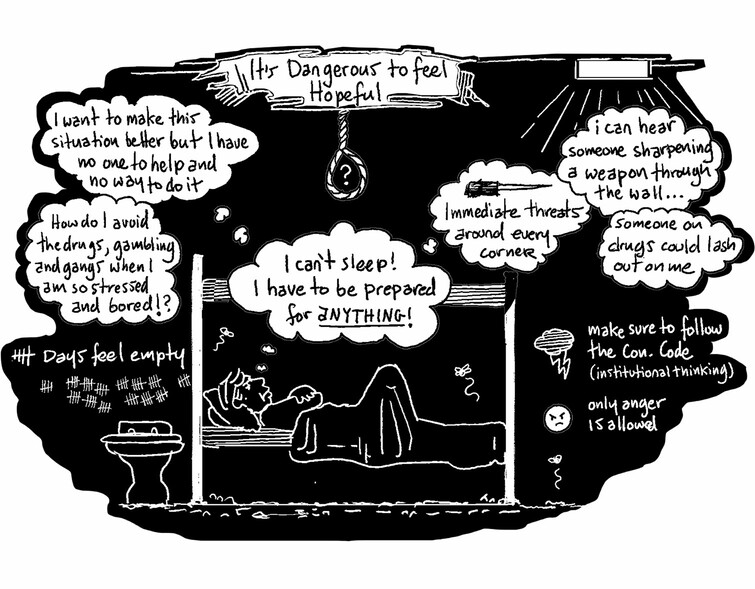 It's Dangerous to feel
Hopeful
I want to make this
situation better but I have
no one to help and
no way to do it
i can hear
someone sharpening
a weapon through
the wall...
?
How do I avoid
the drugs, gambling
and gangs when I
am so stressed
and bored!?
Immediate threats
around every
corner
someone on
drugs could lash
out on me
I can't sleep!
I have to be prepared
for ANYTHING!
Days feel empty
make sure to follow
the Con. Code
(institutional thinking)
only anger
is allowed